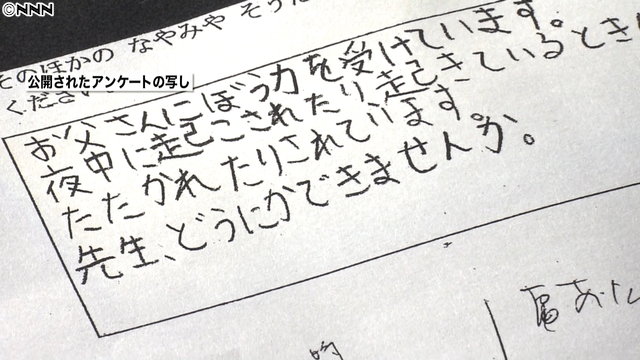 NNN
そのほかの なやみや そうだ
ください
公開されたアンケートの写し
お父さんにぼう力を受けています。
夜中に起こされたり、起きているときに
たたかれたりされています。
先生、どうにかできませんか。
的